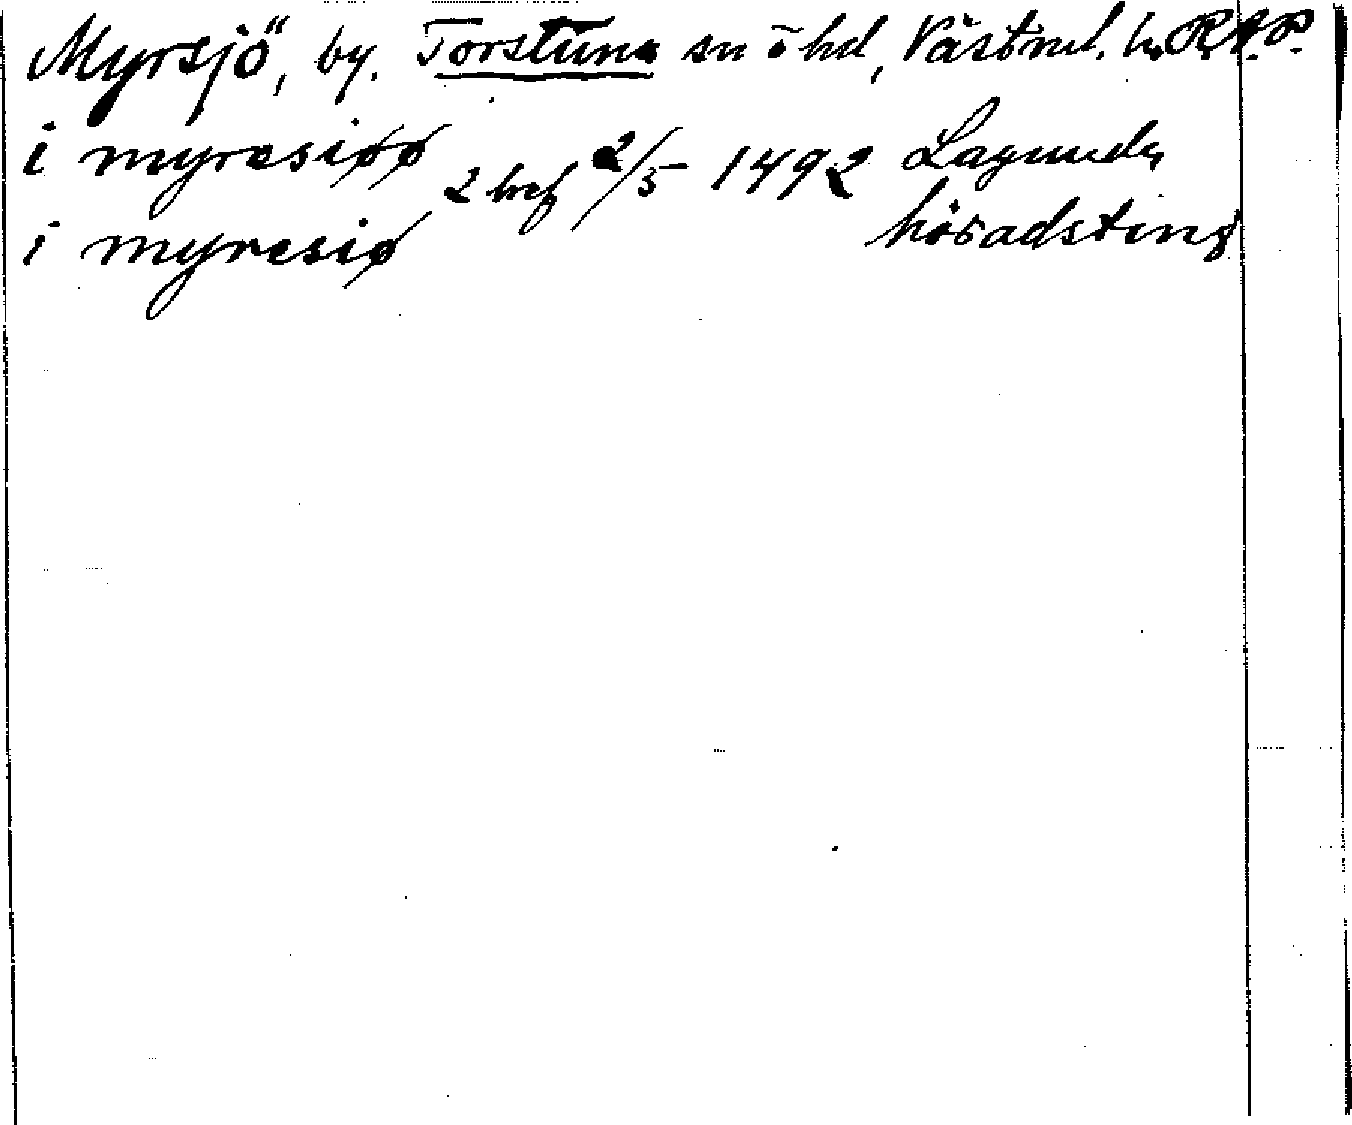 Myrsjö, by. Torstuna sn o hd, Västml. l. RAP.
i myresiøø 2 bref 2/5 1492 Lagunda
i myresiø häradsting